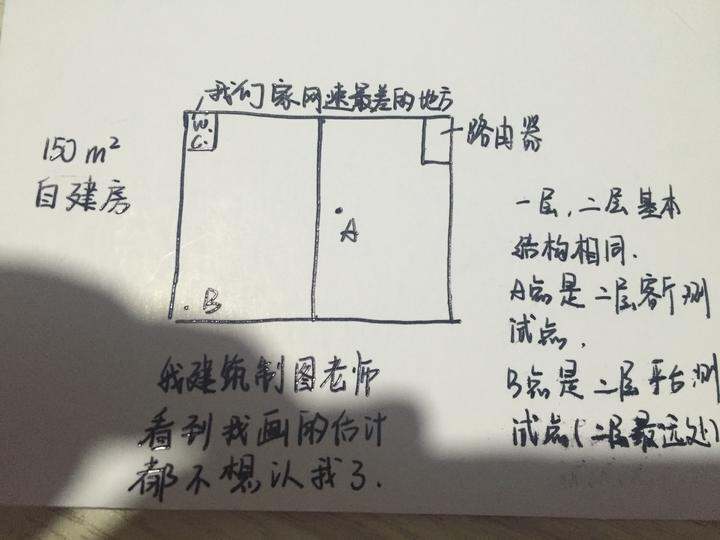 我们家网速最差的地方
W.
C.
路由器
150 m²
自建房
A
B
一层,二层基本
结构相同.
A点是二层客厅测
试点.
B点是二层平台测
试点(二层最远处)
我建筑制图老师
看到我画的估计
都不想认我了.